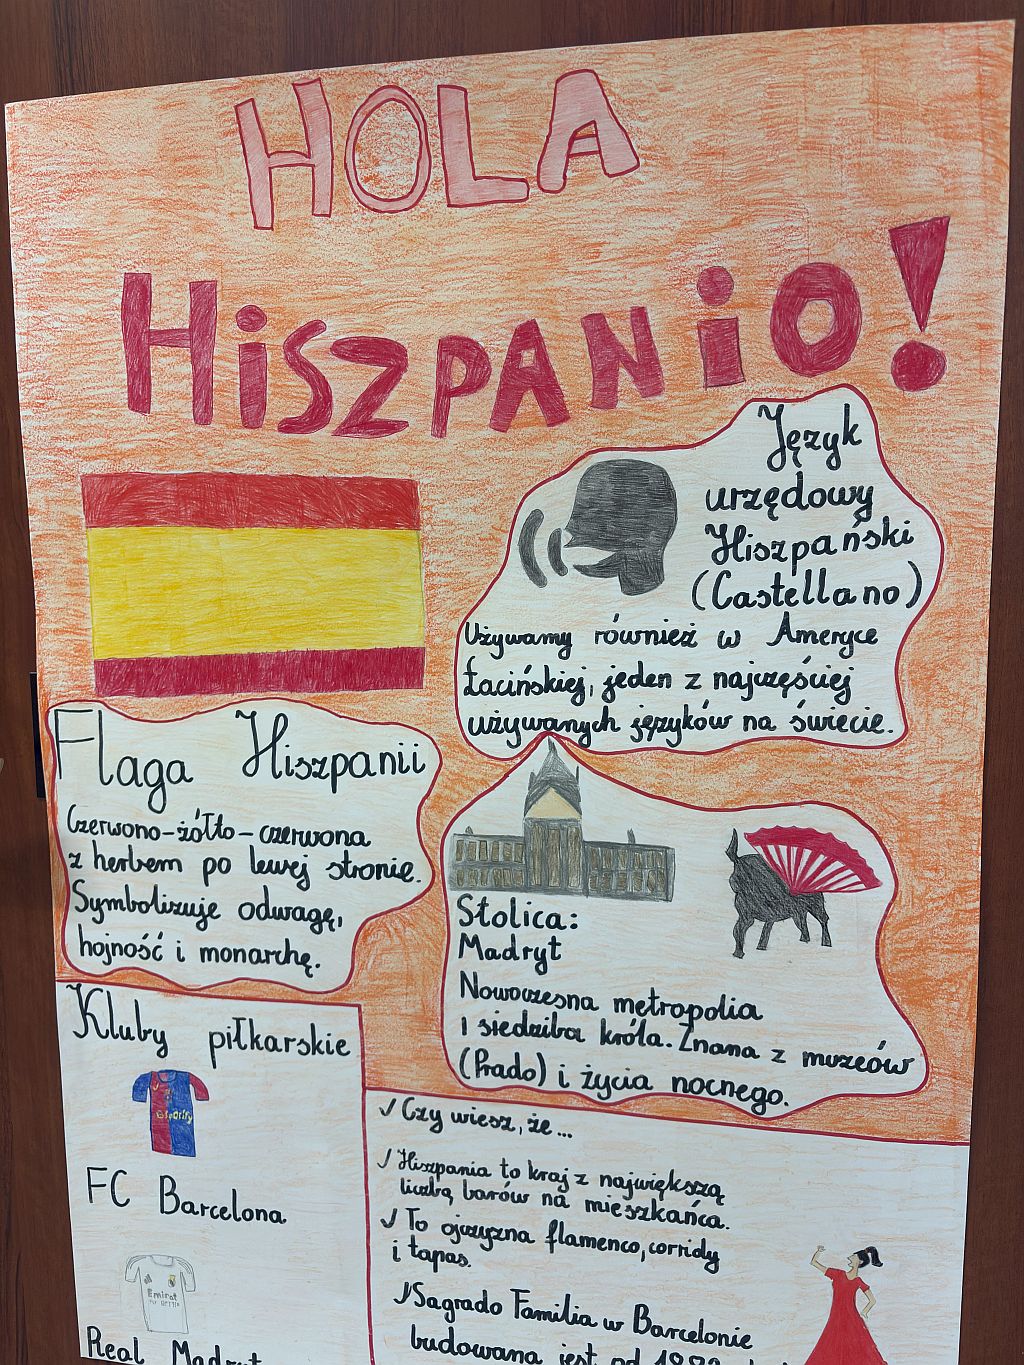 HOLA
HiSZPANiO!
Język
urzędowy
Hiszpański
(Castellano)
Używamy również w Ameryce
Łacińskiej, jeden z najczęściej
używanych języków na świecie.
Flaga Hiszpanii
Czerwono-żółto-czerwona
z herbem po lewej stronie.
Symbolizuje odwagę,
hojność i monarchę.
Stolica:
Madryt
Nowoczesna metropolia
i siedziba króla. Znana z muzeów
(Prado) i życia nocnego.
Kluby piłkarskie
FC Barcelona
Emirat
Real Madryt
✓ Czy wiesz, że...
✓ Hiszpania to kraj z największą
liczbą barów na mieszkańca.
✓ To ojczyzna flamenco, corridy
i tapas.
✓ Sagrado Familia w Barcelonie
budowana jest od 1882